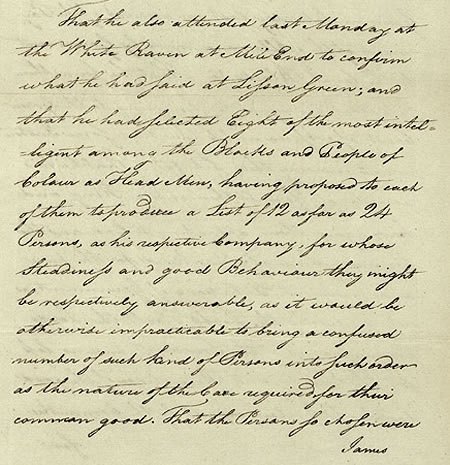 That he also attended last Monday at
the White Raven at Mile End to confirm
what he had said at Lisson Green; and
that he had selected Eight of the most intel=
=ligent among the Blacks and People of
Colour as Head Men, having proposed to each
of them to produce a List of 12 as far as 24
Persons, as his respective Company, for whose
Steadiness and good Behaviour they might
be respectively answerable, as it would be
otherwise impracticable to bring a confused
number of such kind of Persons into such order
as the nature of the Case required for their
common good. That the Persons so chosen were
James